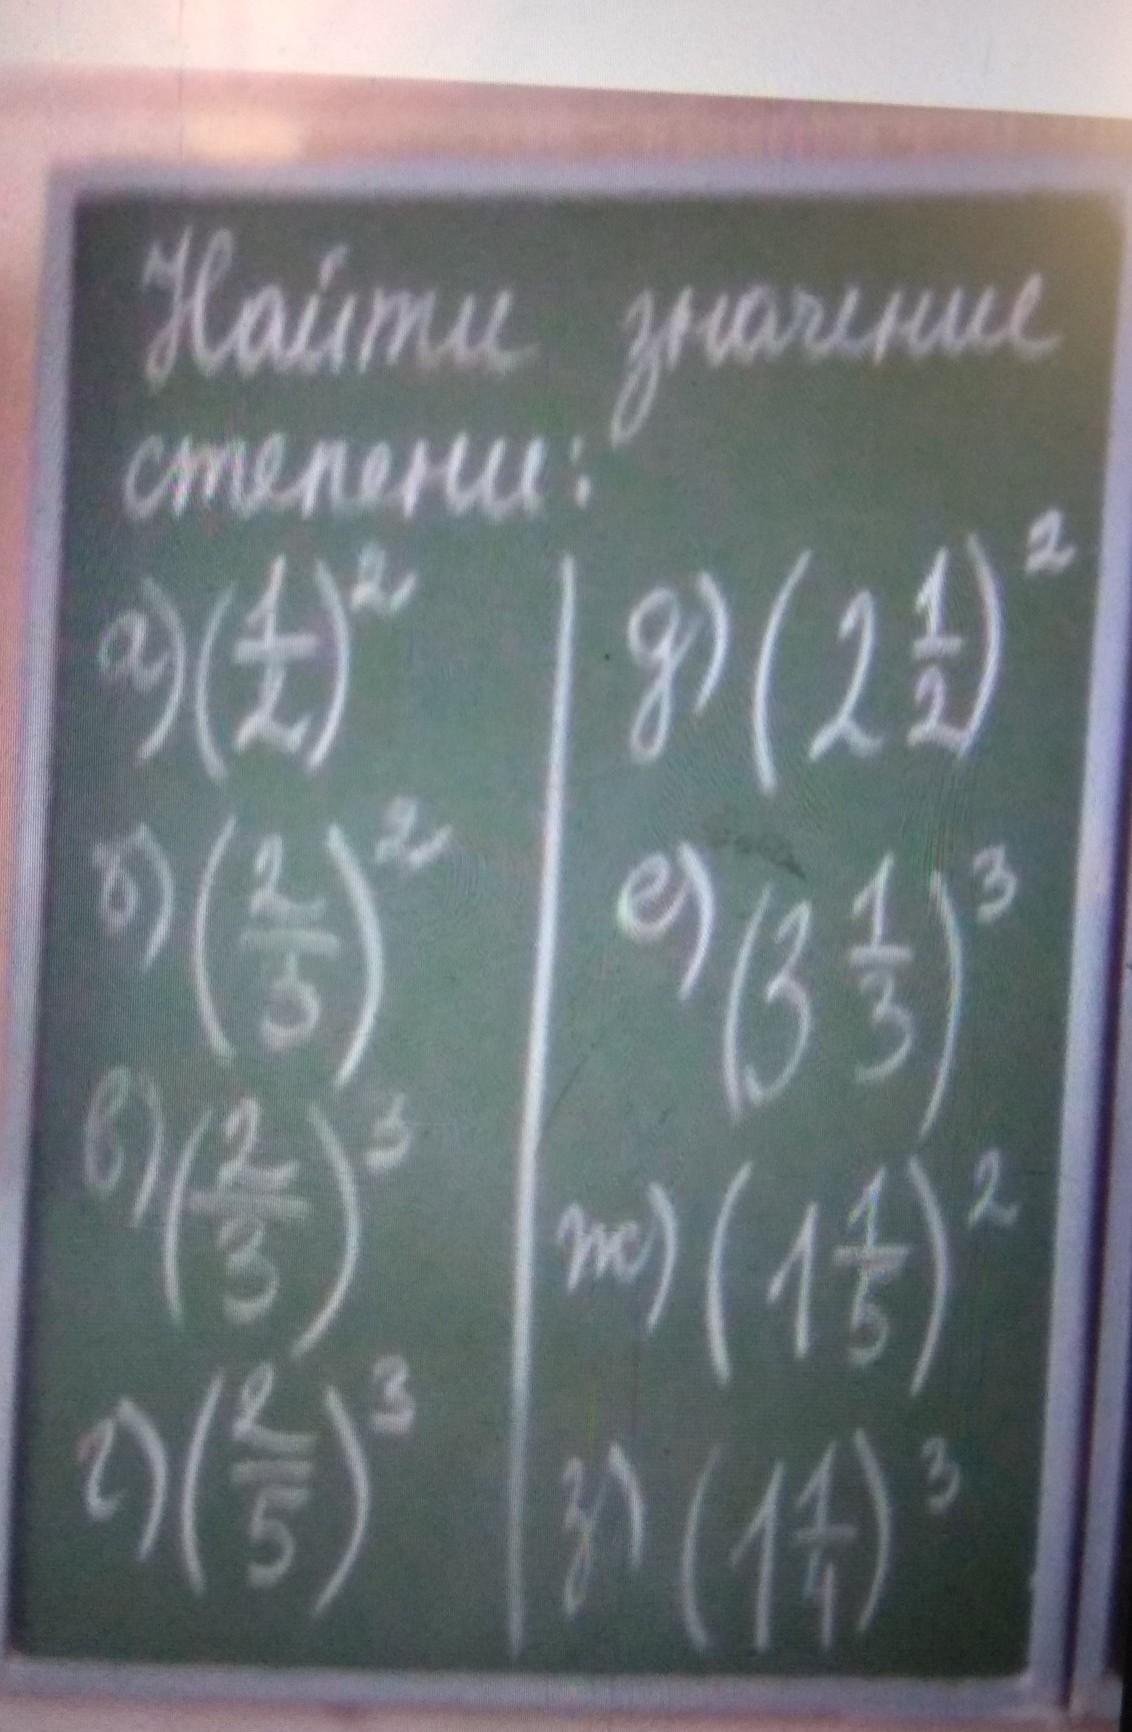 Найти значение
степени:
а) (1/2)²
б) (2/3)²
в) (2/3)³
г) (2/5)³
д) (2 1/2)²
е) (3 1/3)³
ж) (1 1/5)²
з) (1 1/4)³